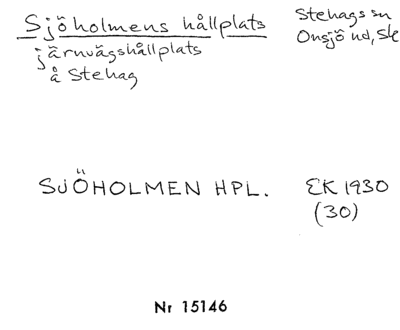 Sjöholmens hållplats
järnvägshållplats
å Stehag
Stehags sn
Onsjö hd, Sk
SJÖHOLMEN HPL.
EK 1930
(30)
Nr 15146